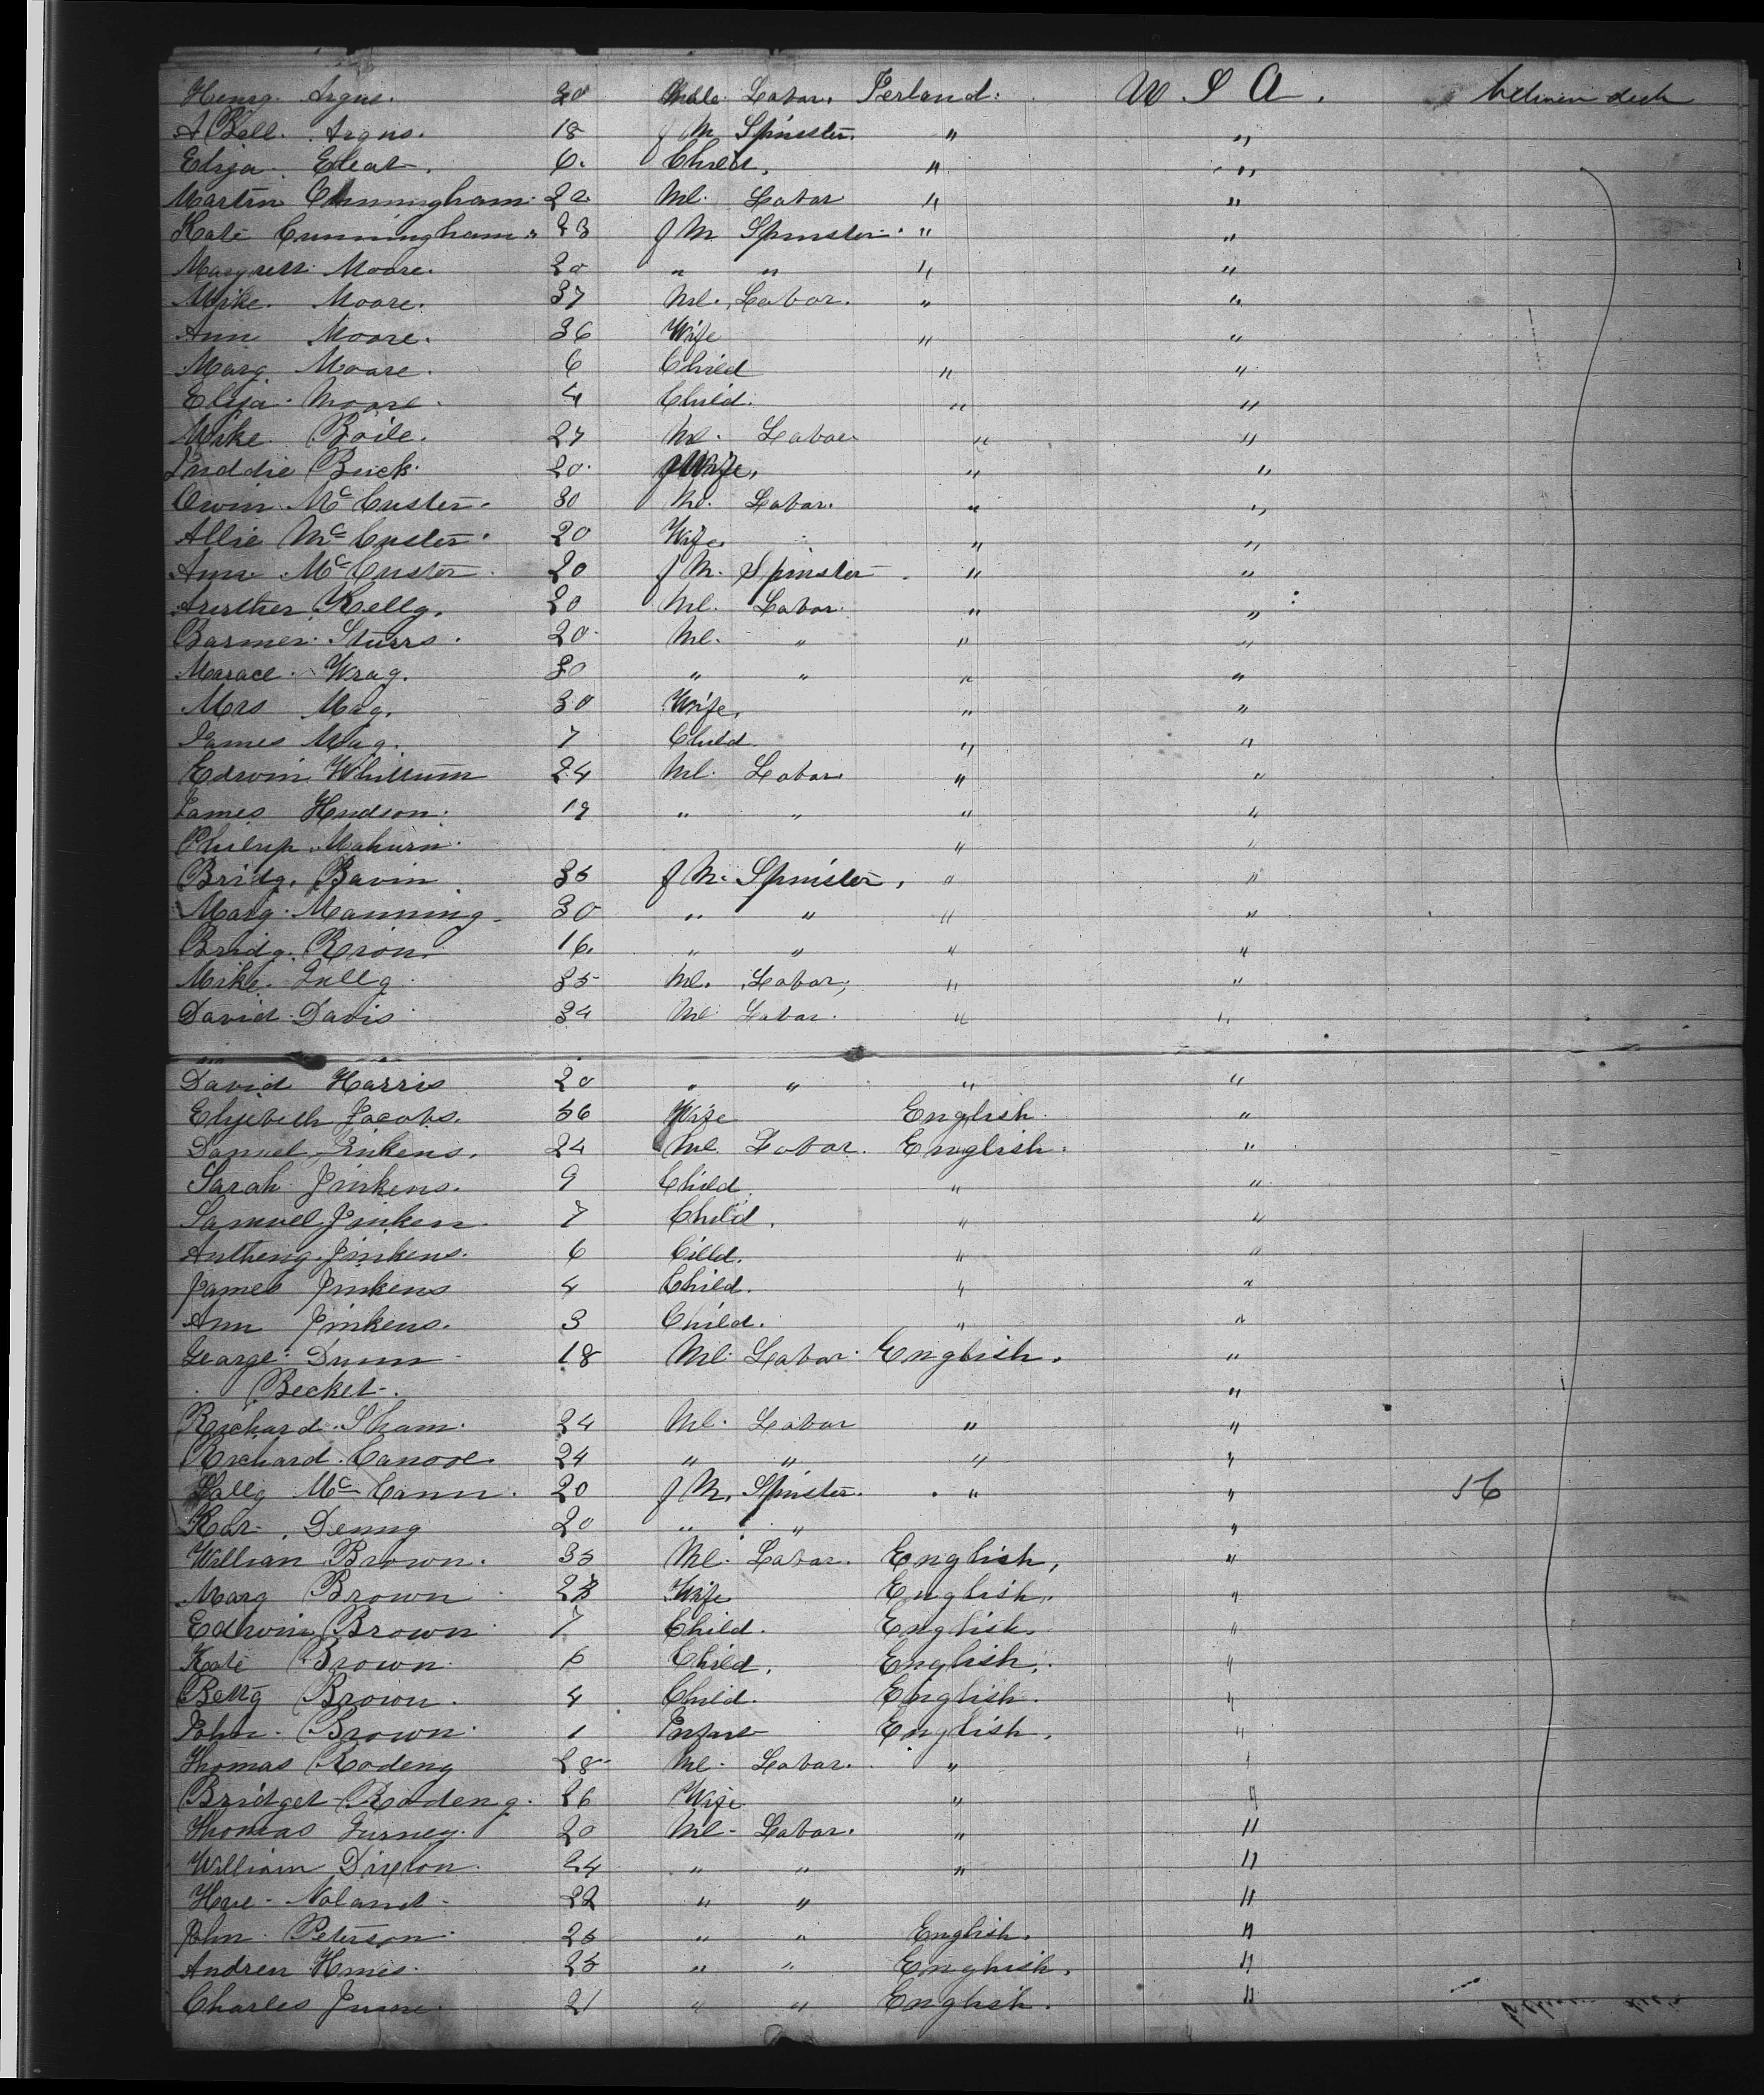 Henrg. Argus. 20 Male Labar, Ierland. U S A. betwen deck
A Bell. Argus. 18 f M Spinster. " "
Eliza. Eleat. 6. Child, " "
Martin Cunningham. 22 Ml. Labar " "
Kate Cunningham. 23 f M Spinster. " "
Margrett Moare. 20 " " " "
Mike. Moare. 37 Ml. Labar. " "
Ann Moare. 36 Wife " "
Marg Moare. 6 Child " "
Eliza. Moare. 4 Child. " "
Mike. Boile. 27 Ml. Labar " "
Buck. 20. Wife, " "
Owin McCuster. 30 Ml. Labar. " "
Allie McCuster. 20 Wife. " "
Ann McCuster. 20 f M. Spinster " "
Kellg. 20 Ml. Labar. " "
Barmer Sturrs. 20. Ml. " " "
Marace. Wrag. 30 " " " "
Mrs Mrg. 30 Wife, " "
James Mrg. 7 Child. " "
Edwin Whittum 24 Ml. Labar " "
James Hudson. 19 " " " "
Philup Mahurn. " "
Bridg. Bavin 35 f M. Spinster, " "
Marg. Manning. 30 " " " "
Bridg. Rion. 16. " " " "
Mike. Lullg 35 Ml. Labar, " "
David. Davis 34 Ml Labar. " "
David Harris 20 " " " "
Elizebeth Jacobs. 36 Wife English. "
Danuel Jinkens. 24 Ml. Labar. English. "
Sarah Jinkens. 9 Child. " "
Samuel Jinken. 7 Child. " "
Antheng. Jinkens. 6 Cilld. " "
James Jinkens 4 Child. " "
Ann Jinkens. 3 Child. " "
Gearge. Drum 18 Ml. Labar. English. "
Becket. "
Richard. Sham. 24 Ml. Labar " "
Richard. Canool. 24 " " " "
Sallg McCann. 20 f M. Spinster. " " 56
Kat. Denng 20 " " "
Willian Brown. 35 Ml. Labar. English, "
Marg Brown 23 Wife English. "
Edwin Brown 7 Child. English. "
Kate Brown. 6 Child. English. "
Bettg Brown. 4 Child. English. "
John. Brown. 1 Enfant English. "
Thomas Rodeng 28 Ml. Labar. " "
Bridget Rodeng. 26 Wife " "
Thomas Furney. 20 Ml. Labar. " "
William Dixton. 24 " " " "
Hue. Noland. 22 " " "
John. Peterson. 25 " " English. "
Andren Hines. 25 " " English. "
Charles June. 21 " " English. "